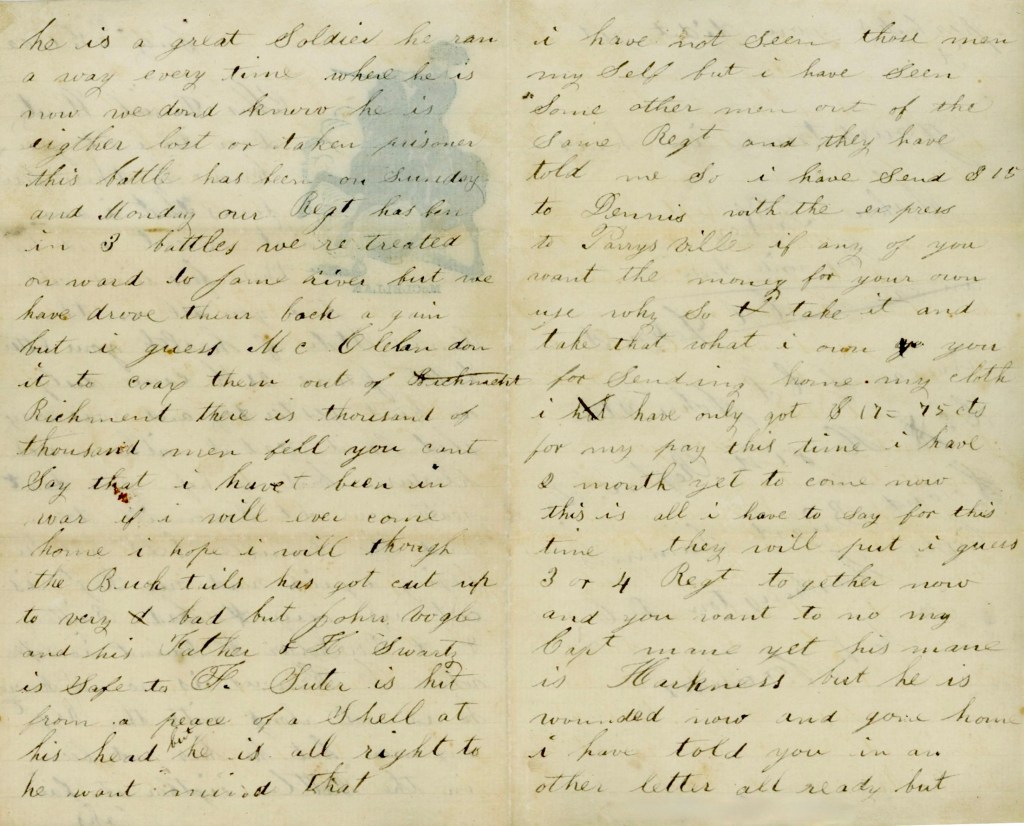 he is a great Soldier he ran
a way every time where he is
now we dond know he is
eigther lost or taken prisoner
this battle has been on Sunday
and Monday our Regt has ben
in 3 battles we re treated
on ward to Jame river but we
have drove them back a gain
but i guess Mc Clelan don
it to coax them out of Richment
Richment there is thousant of
thousand men fell you cant
Say that i havet been in
war if i will ever come
home i hope i will though
the Buck tails has got cut up
to very bad but John Vogle
and his Father & H Swarts
is Safe to F. Suter is hit
from a peace of a Shell at
his head but he is all right to
he want mind that
i have not Seen those men
my Self but i have Seen
Some other men out of the
Same Regt and they have
told me So i have Send $ 15
to Dennis with the express
to Parrys ville if any of you
want the money for your own
use why So take it and
take that what i own you
for Sending home my cloth
i have only got $ 17 = 75 cts
for my pay this time i have
2 month yet to come now
this is all i have to say for this
time they will put i guess
3 or 4 Regt to gether now
and you want to no my
Capt name yet his name
is Harkness but he is
wounded now and gone home
i have told you in an
other letter all ready but